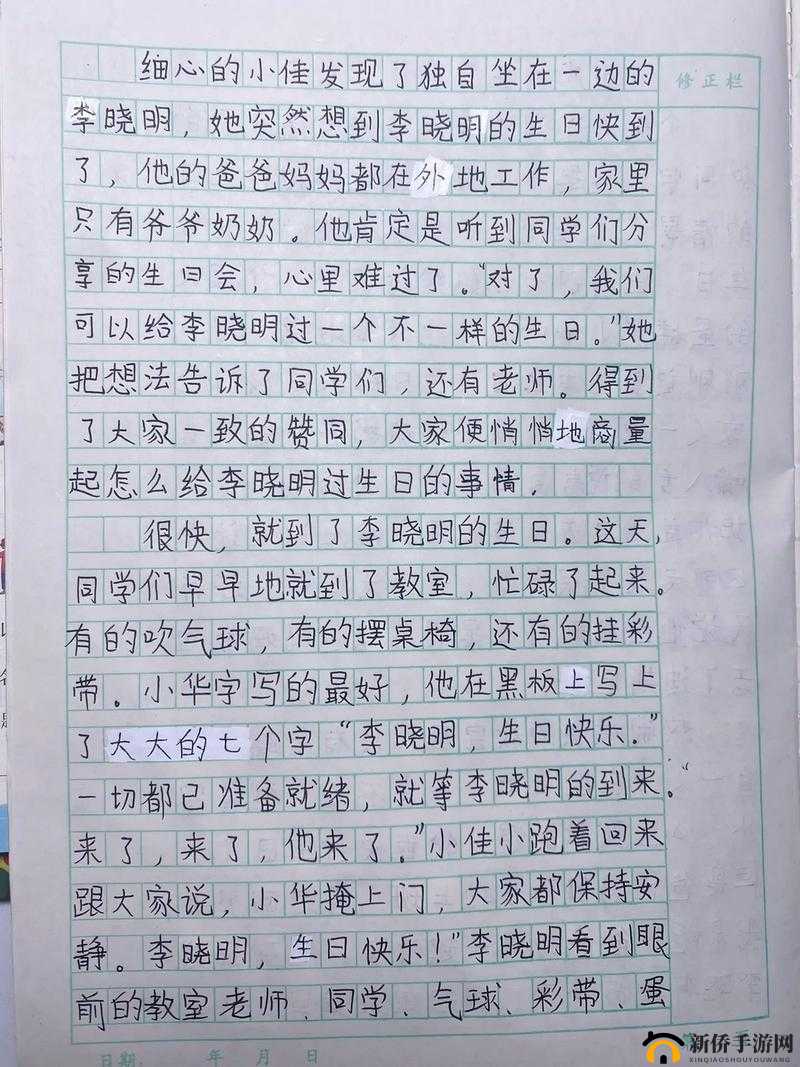 细心的小佳发现了独自坐在一边的
修正栏
李晓明，她突然想到李晓明的生日快到
了，他的爸爸妈妈都在外地工作，家里
只有爷爷奶奶。他肯定是听到同学们分
享的生日会，心里难过了。“对了，我们
可以给李晓明过一个不一样的生日。”她
把想法告诉了同学们，还有老师。得到
了大家一致的赞同，大家便悄悄地商量
起怎么给李晓明过生日的事情．
很快，就到了李晓明的生日。这天，
同学们早早地就到了教室，忙碌了起来。
有的吹气球，有的摆桌椅，还有的挂彩
带。小华字写的最好，他在黑板上写上
了大大的七个字“李晓明，生日快乐．”
一切都已准备就绪，就等李晓明的到来．“
来了，来了，他来了．”小佳小跑着回来
跟大家说，小华掩上门，大家都保持安
静。李晓明，生日快乐！”李晓明看到眼
前的教室老师、同学、气球、彩带、蛋
日期． 年 月 日
新侨手游网
XINQIAOSHOUYOUWANG